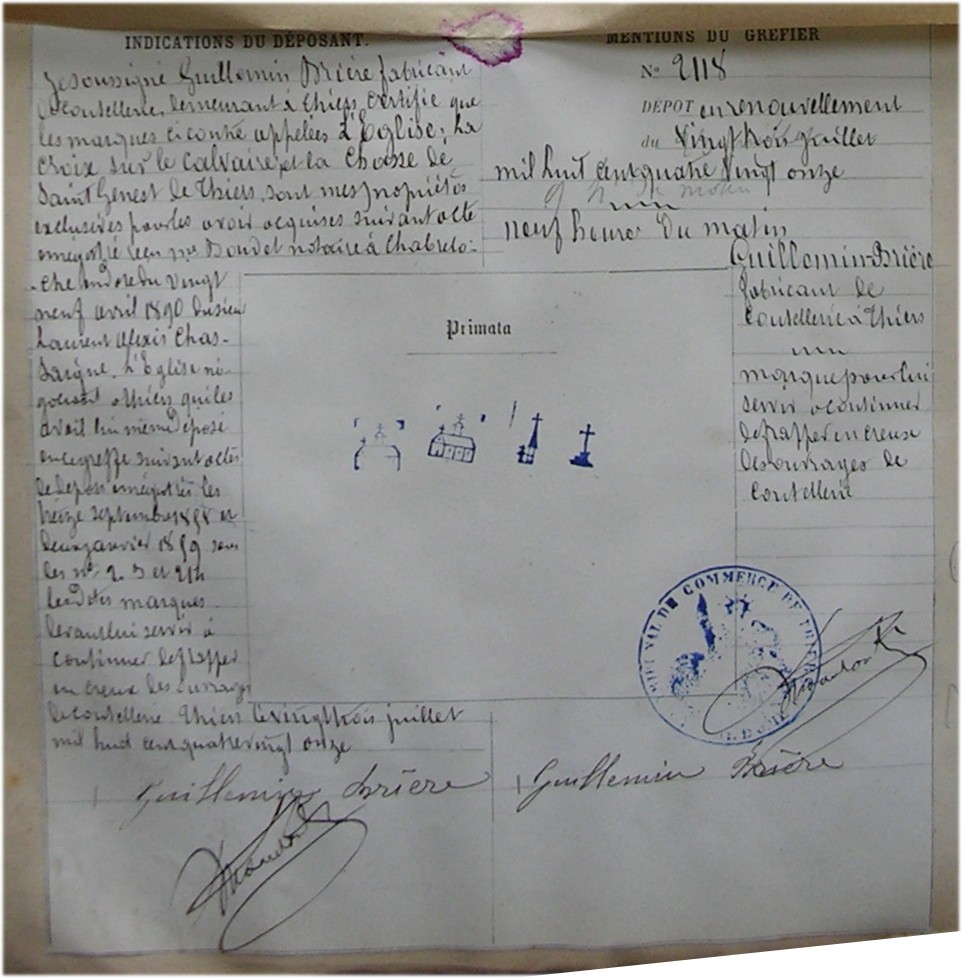 INDICATIONS DU DÉPOSANT.
Je soussigné Guillemin Brière fabricant
de coutellerie, demeurant à Thiers, certifie que
les marques ci contre appelées L'Eglise, La
Croix sur le Calvaire et la Chasse de
Saint Genest de Thiers, sont mes propriétés
exclusives pour les avoir acquises suivant acte
enregistré reçu me Boudet notaire à Chabrelo-
-che en date du vingt
neuf avril 1890 du sieur
Laurent Alexis Chas-
Saigne L'Eglise né-
gociant à Thiers qui les
avait lui même déposé
en ce greffe suivant actes
de dépôts enregistrés les
treize septembre et
deux janvier sous
les nos
les dites marques
devant lui servir à
continuer de frapper
en creux des ouvrages
de coutellerie. Thiers le vingt trois juillet
mil huit cent quatre vingt onze
Guillemin Brière
MENTIONS DU GREFIER
No 2118
DÉPOT en renouvellement
du vingt trois juillet
mil huit cent quatre vingt onze
neuf heures du matin
Guillemin-Brière
fabricant de
coutellerie à Thiers
marque pour lui
servir à continuer
de frapper en creux
des ouvrages de
coutellerie
Primata
TRIBUNAL DE COMMERCE DE
Guillemin Brière